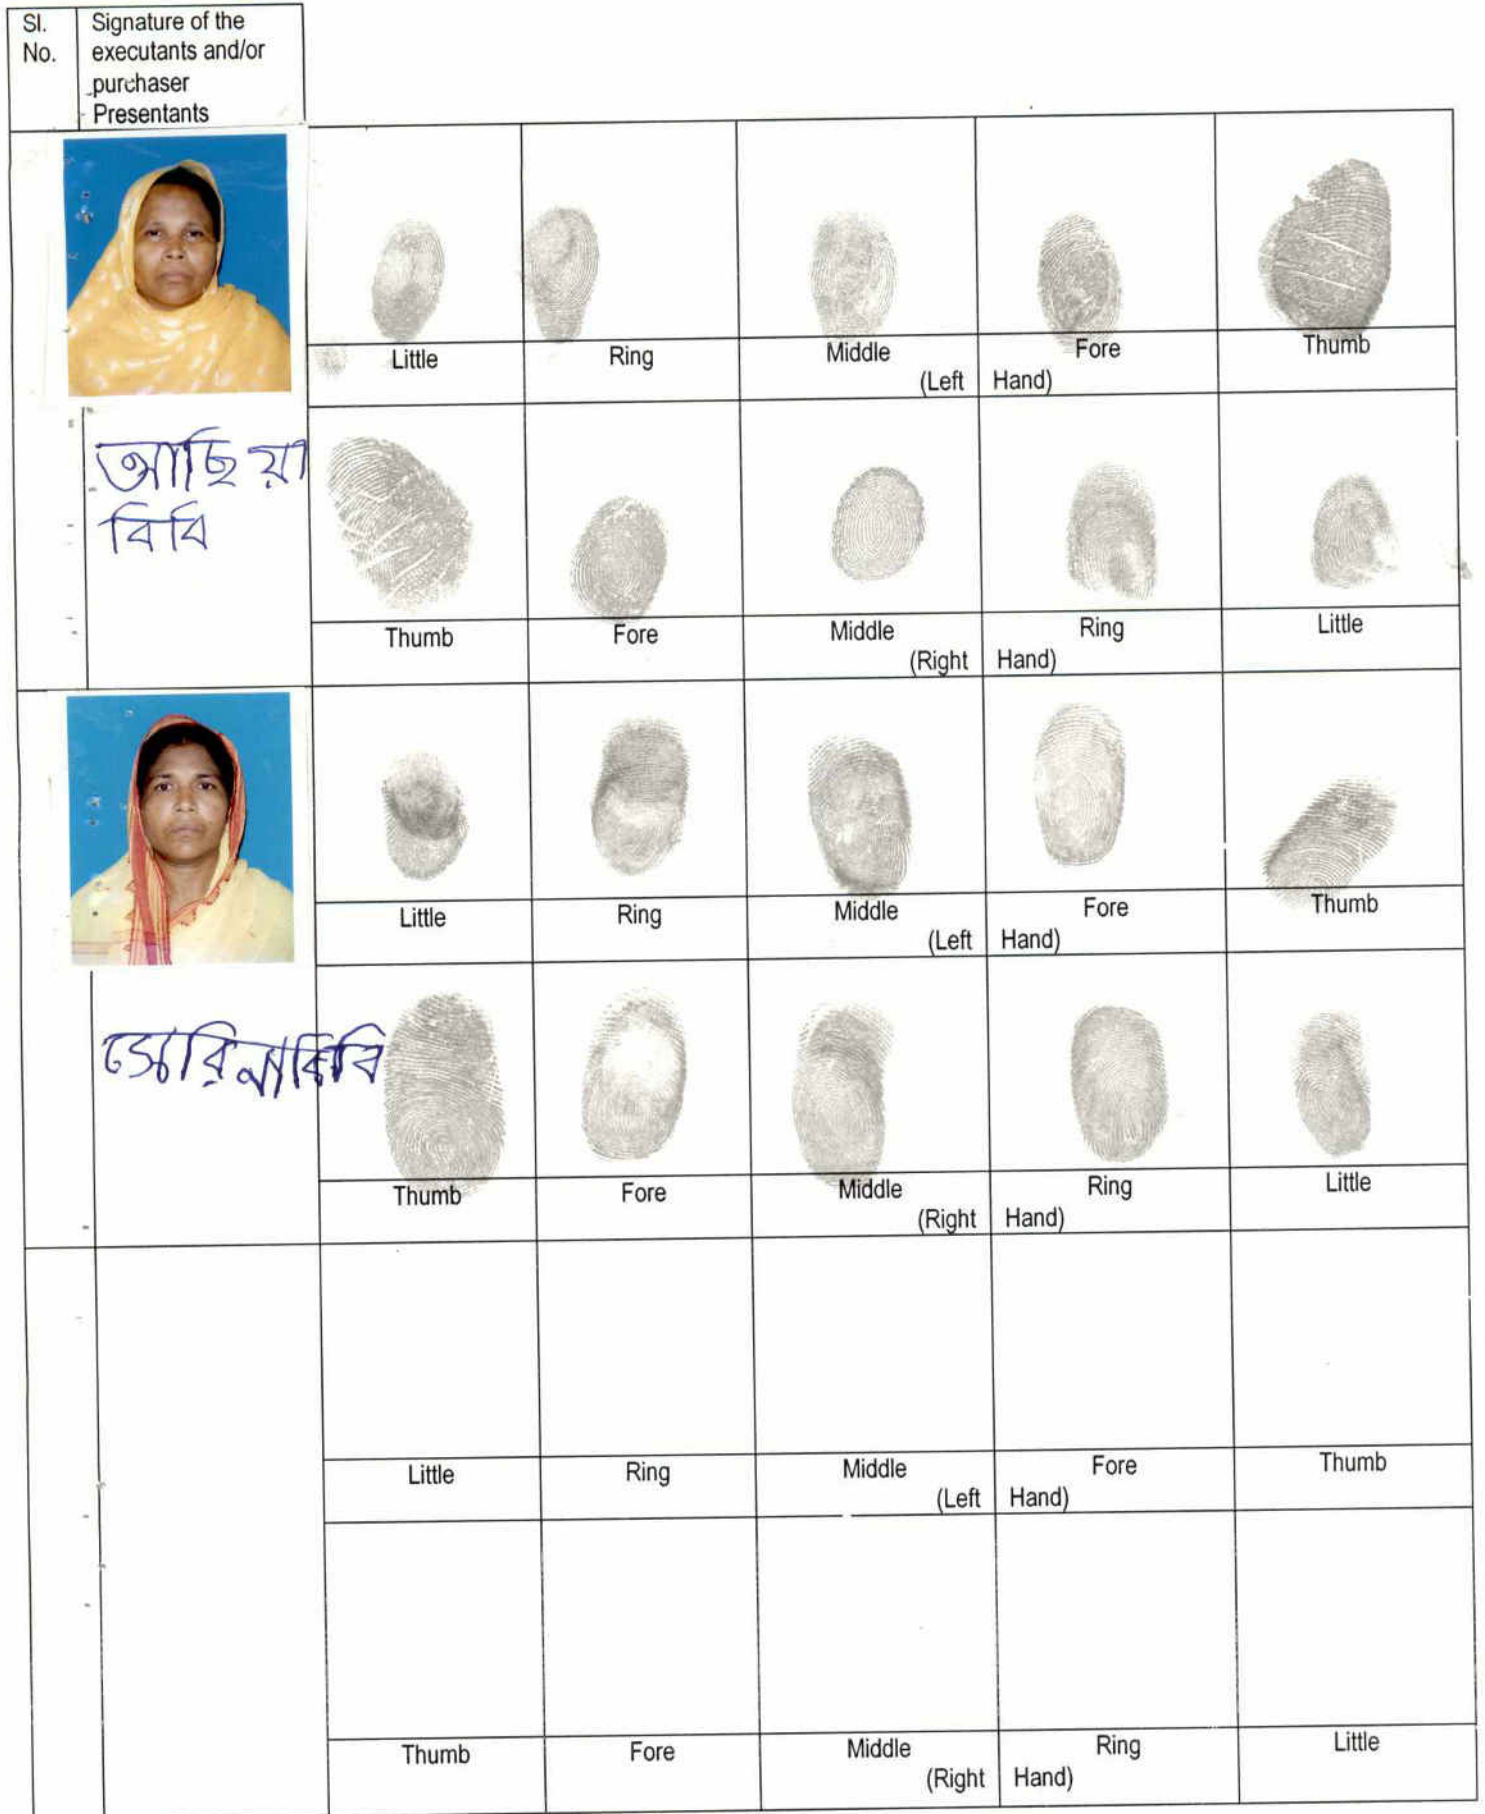 Sl. No.
Signature of the executants and/or purchaser Presentants
Little Ring Middle Fore Thumb
(Left Hand)
আছিয়া
বিবি
Thumb Fore Middle Ring Little
(Right Hand)
Little Ring Middle Fore Thumb
(Left Hand)
সেরিনা বিবি
Thumb Fore Middle Ring Little
(Right Hand)
Little Ring Middle Fore Thumb
(Left Hand)
Thumb Fore Middle Ring Little
(Right Hand)